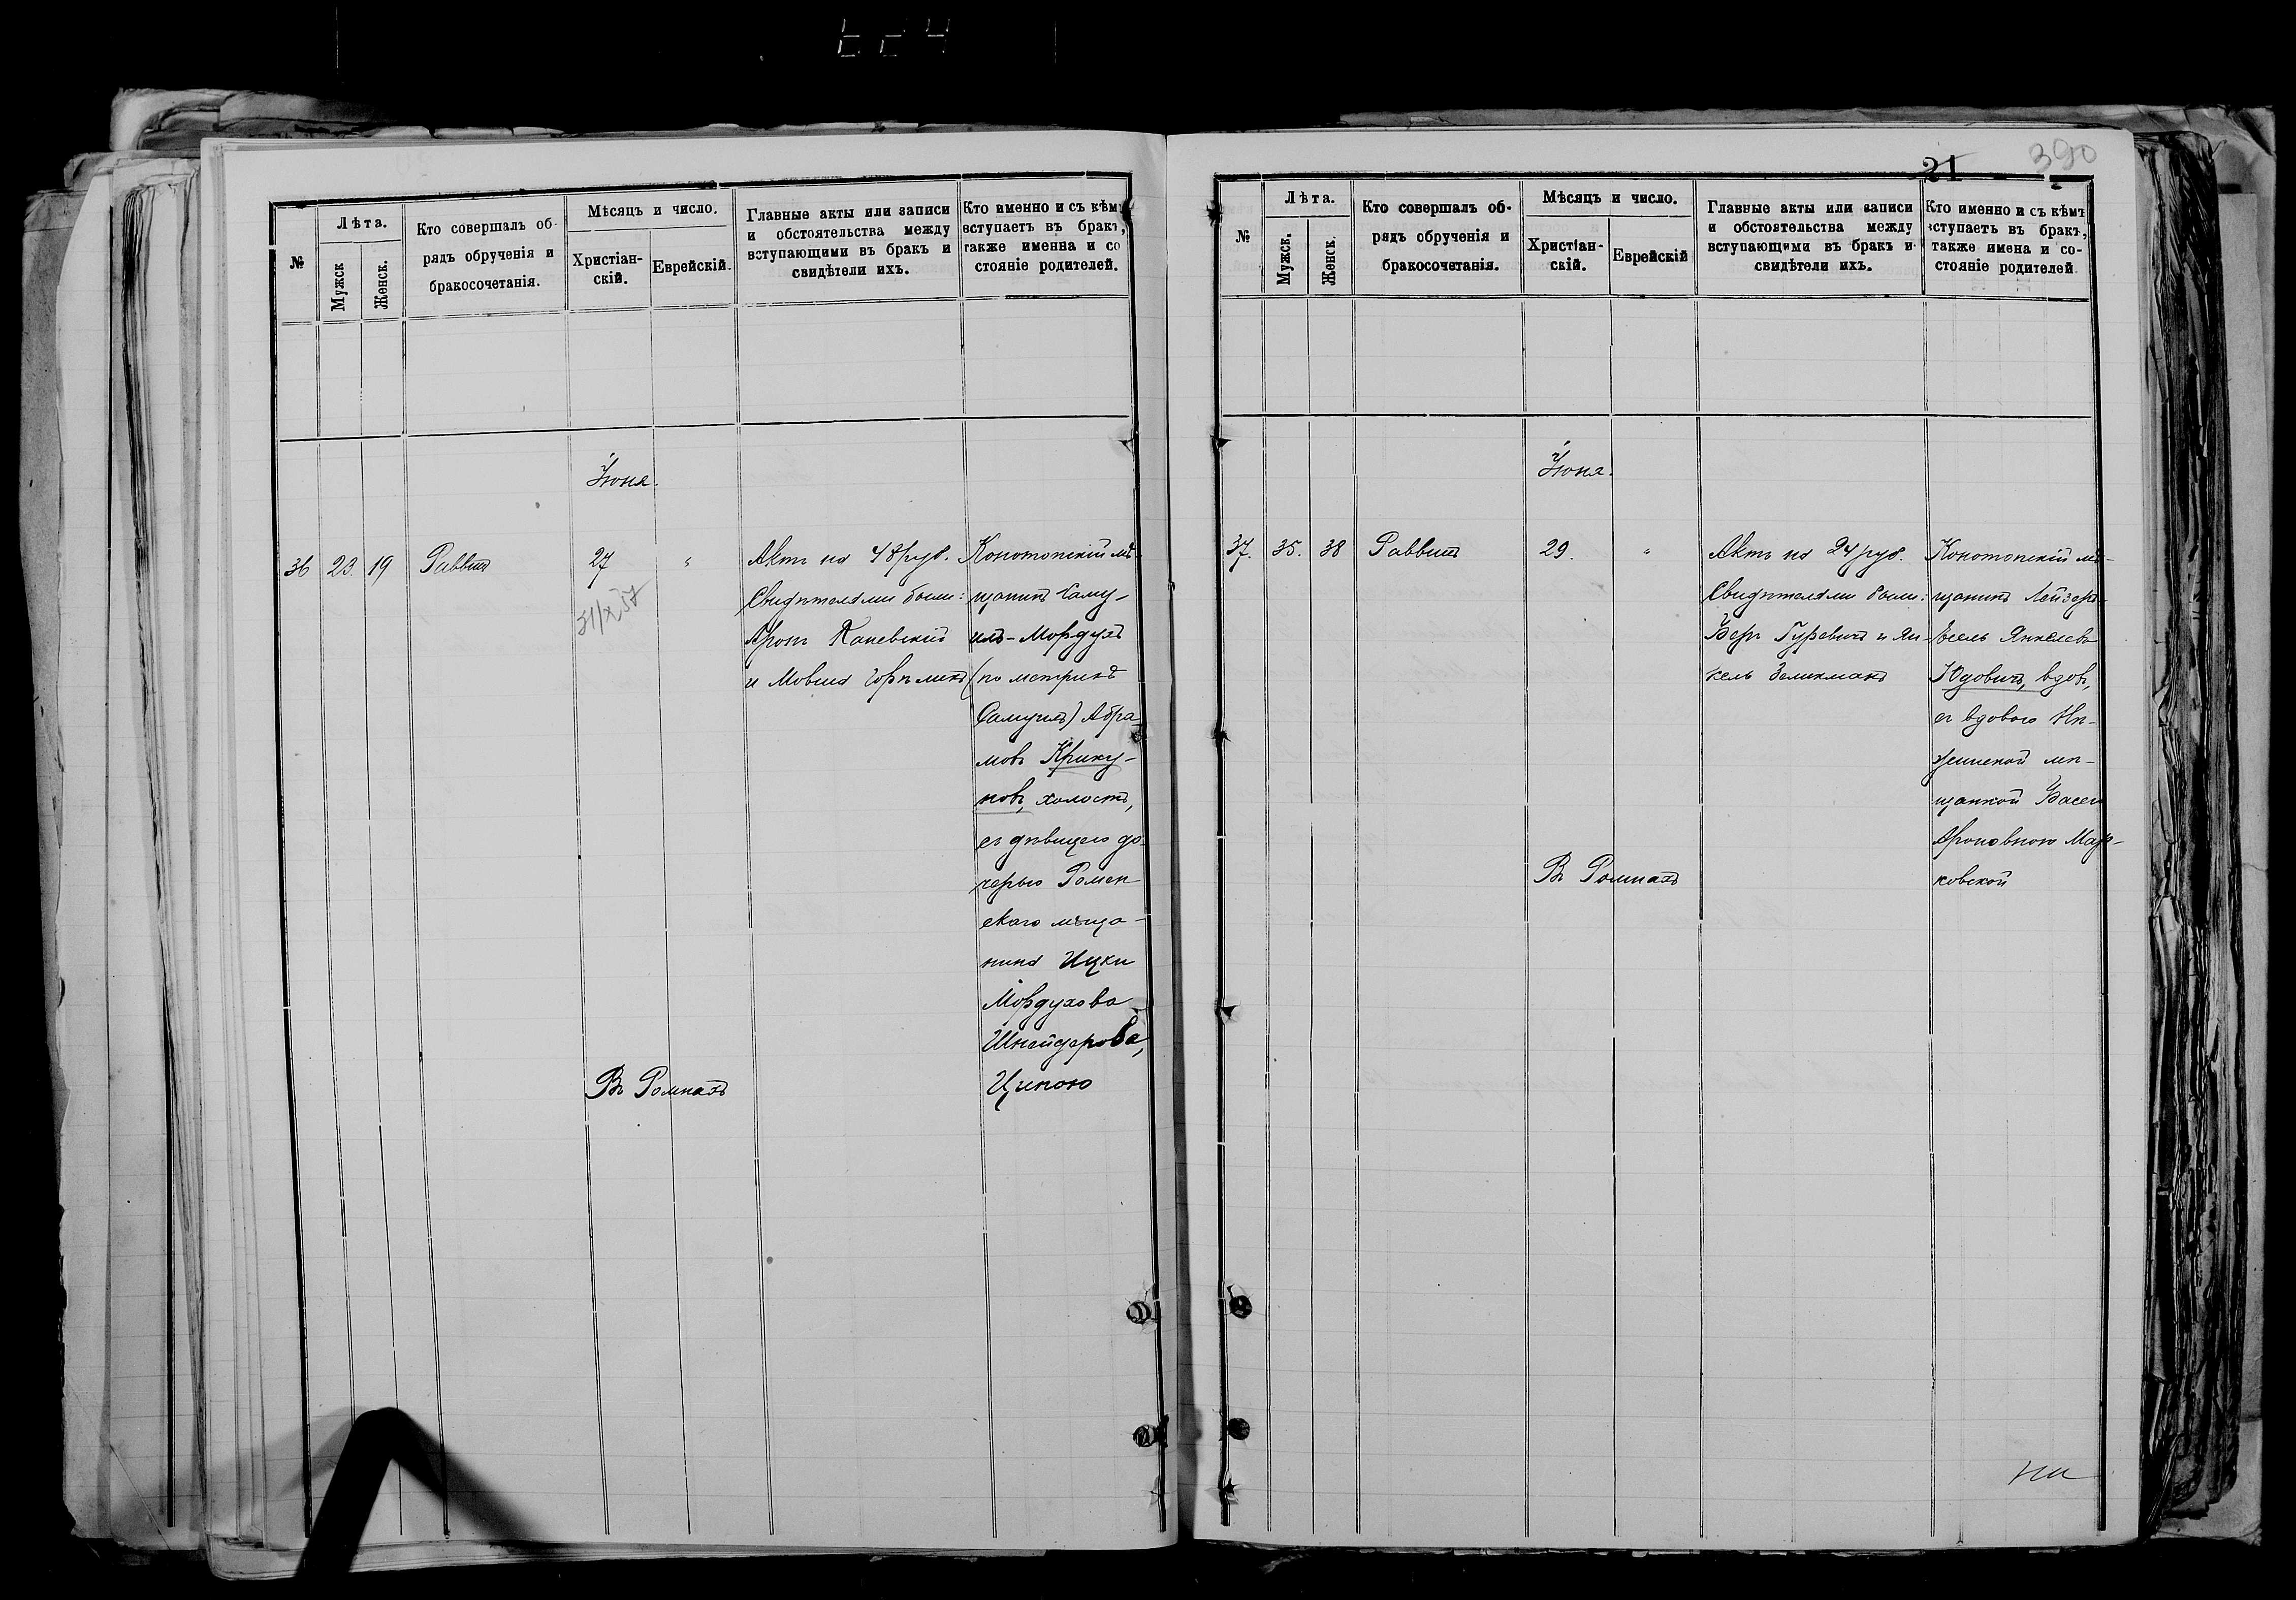 №
Лѣта.
Мужск
Женск.
Кто совершалъ об-
рядъ обрученія и
бракосочетанія.
Мѣсяцъ и число.
Христіан-
скій.
Еврейскій.
Главные акты или записи
и обстоятельства между
вступающими въ бракъ и
свидѣтели ихъ.
Кто именно и съ кѣмъ
вступаетъ въ бракъ,
также именна и со
стояніе родителей.
Іюня.
36
23.
19
Раввинъ
27
"
31/X 37
Актъ на 48 руб.
Свидѣтелями были:
Аронъ Каневскій
и Мовша
Конотопскій мѣ-
щанинъ Саму-
илъ-Мордухъ
(по метрикѣ
Самуилъ) Абра
мовъ Крику-
новъ, холостъ,
съ дѣвицею до-
черью Ромен
скаго мѣща-
нина Ицки
Мордухова
Шнейдерова,
Ципою
Въ Ромнахъ
21
390
№
Лѣта.
Мужск.
Женск.
Кто совершалъ об-
рядъ обрученія и
бракосочетанія.
Мѣсяцъ и число.
Христіан-
скій.
Еврейскій
Главные акты или записи
и обстоятельства между
вступающими въ бракъ и
свидѣтели ихъ.
Кто именно и съ кѣмъ
вступаетъ въ бракъ,
также имена и со-
стояніе родителей
Іюня.
37.
35.
38
Раввинъ
29.
"
Актъ на 24 руб.
Свидѣтелями были:
Беръ Гуревичъ и Ян-
кель Зеликманъ
Конотопскій мѣ-
щанинъ Лейзеръ-
Іосель Янкелевъ
Юдовичъ, вдовъ,
съ вдовою Нѣ-
жинской мѣ-
щанкой Васею
Ароновною Мар-
ковской
Въ Ромнахъ